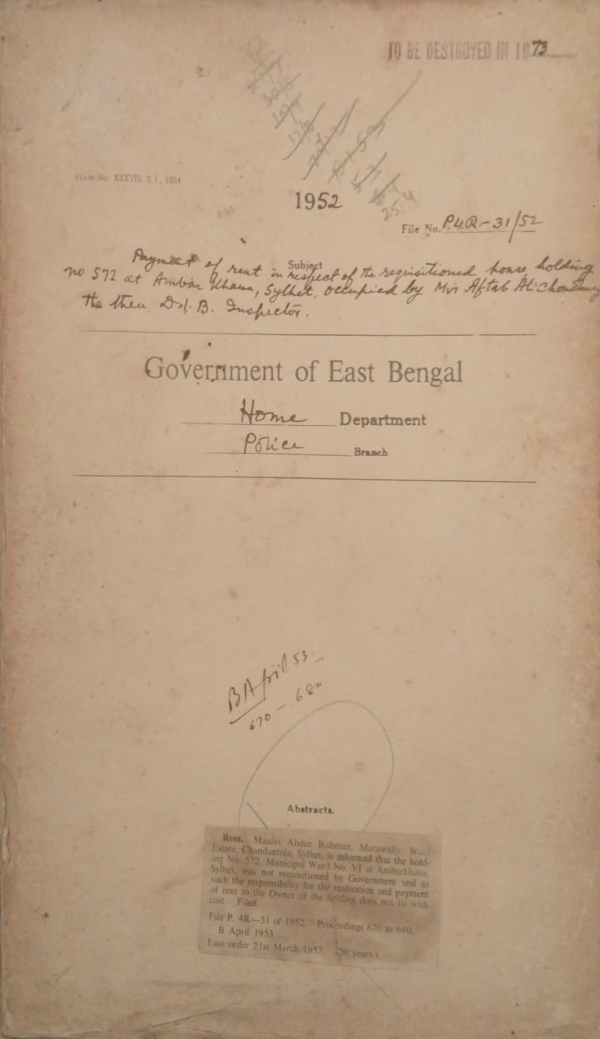 TO BE DESTROYED IN 1973
25.4
1952
File No. P4R-31/52
Subject
Payment of rent in respect of the requisitioned house, holding
no 572 at Ambar Khana, Sylhet, occupied by Mvi Aftab Ali Choudhury
the then D.I.B. Inspector.
Government of East Bengal
Home Department
Police Branch
B April 53
670 - 680
Abstracts.
Rent. Maulvi Abdur Rahman, Mutawally,
Estate, Chandantola, Sylhet, is informed that the hold-
ing No. 572, Municipal Ward No. VI at Ambarkhana,
Sylhet, was not requisitioned by Government and as
such the responsibility for the realisation and payment
of rent to the Owner of the holding does not lie with
Filed
File P. 4R—31 of 1952. Proceedings 670 to 680
B April 1953.
Last order 21st March 1953. (20 years.)